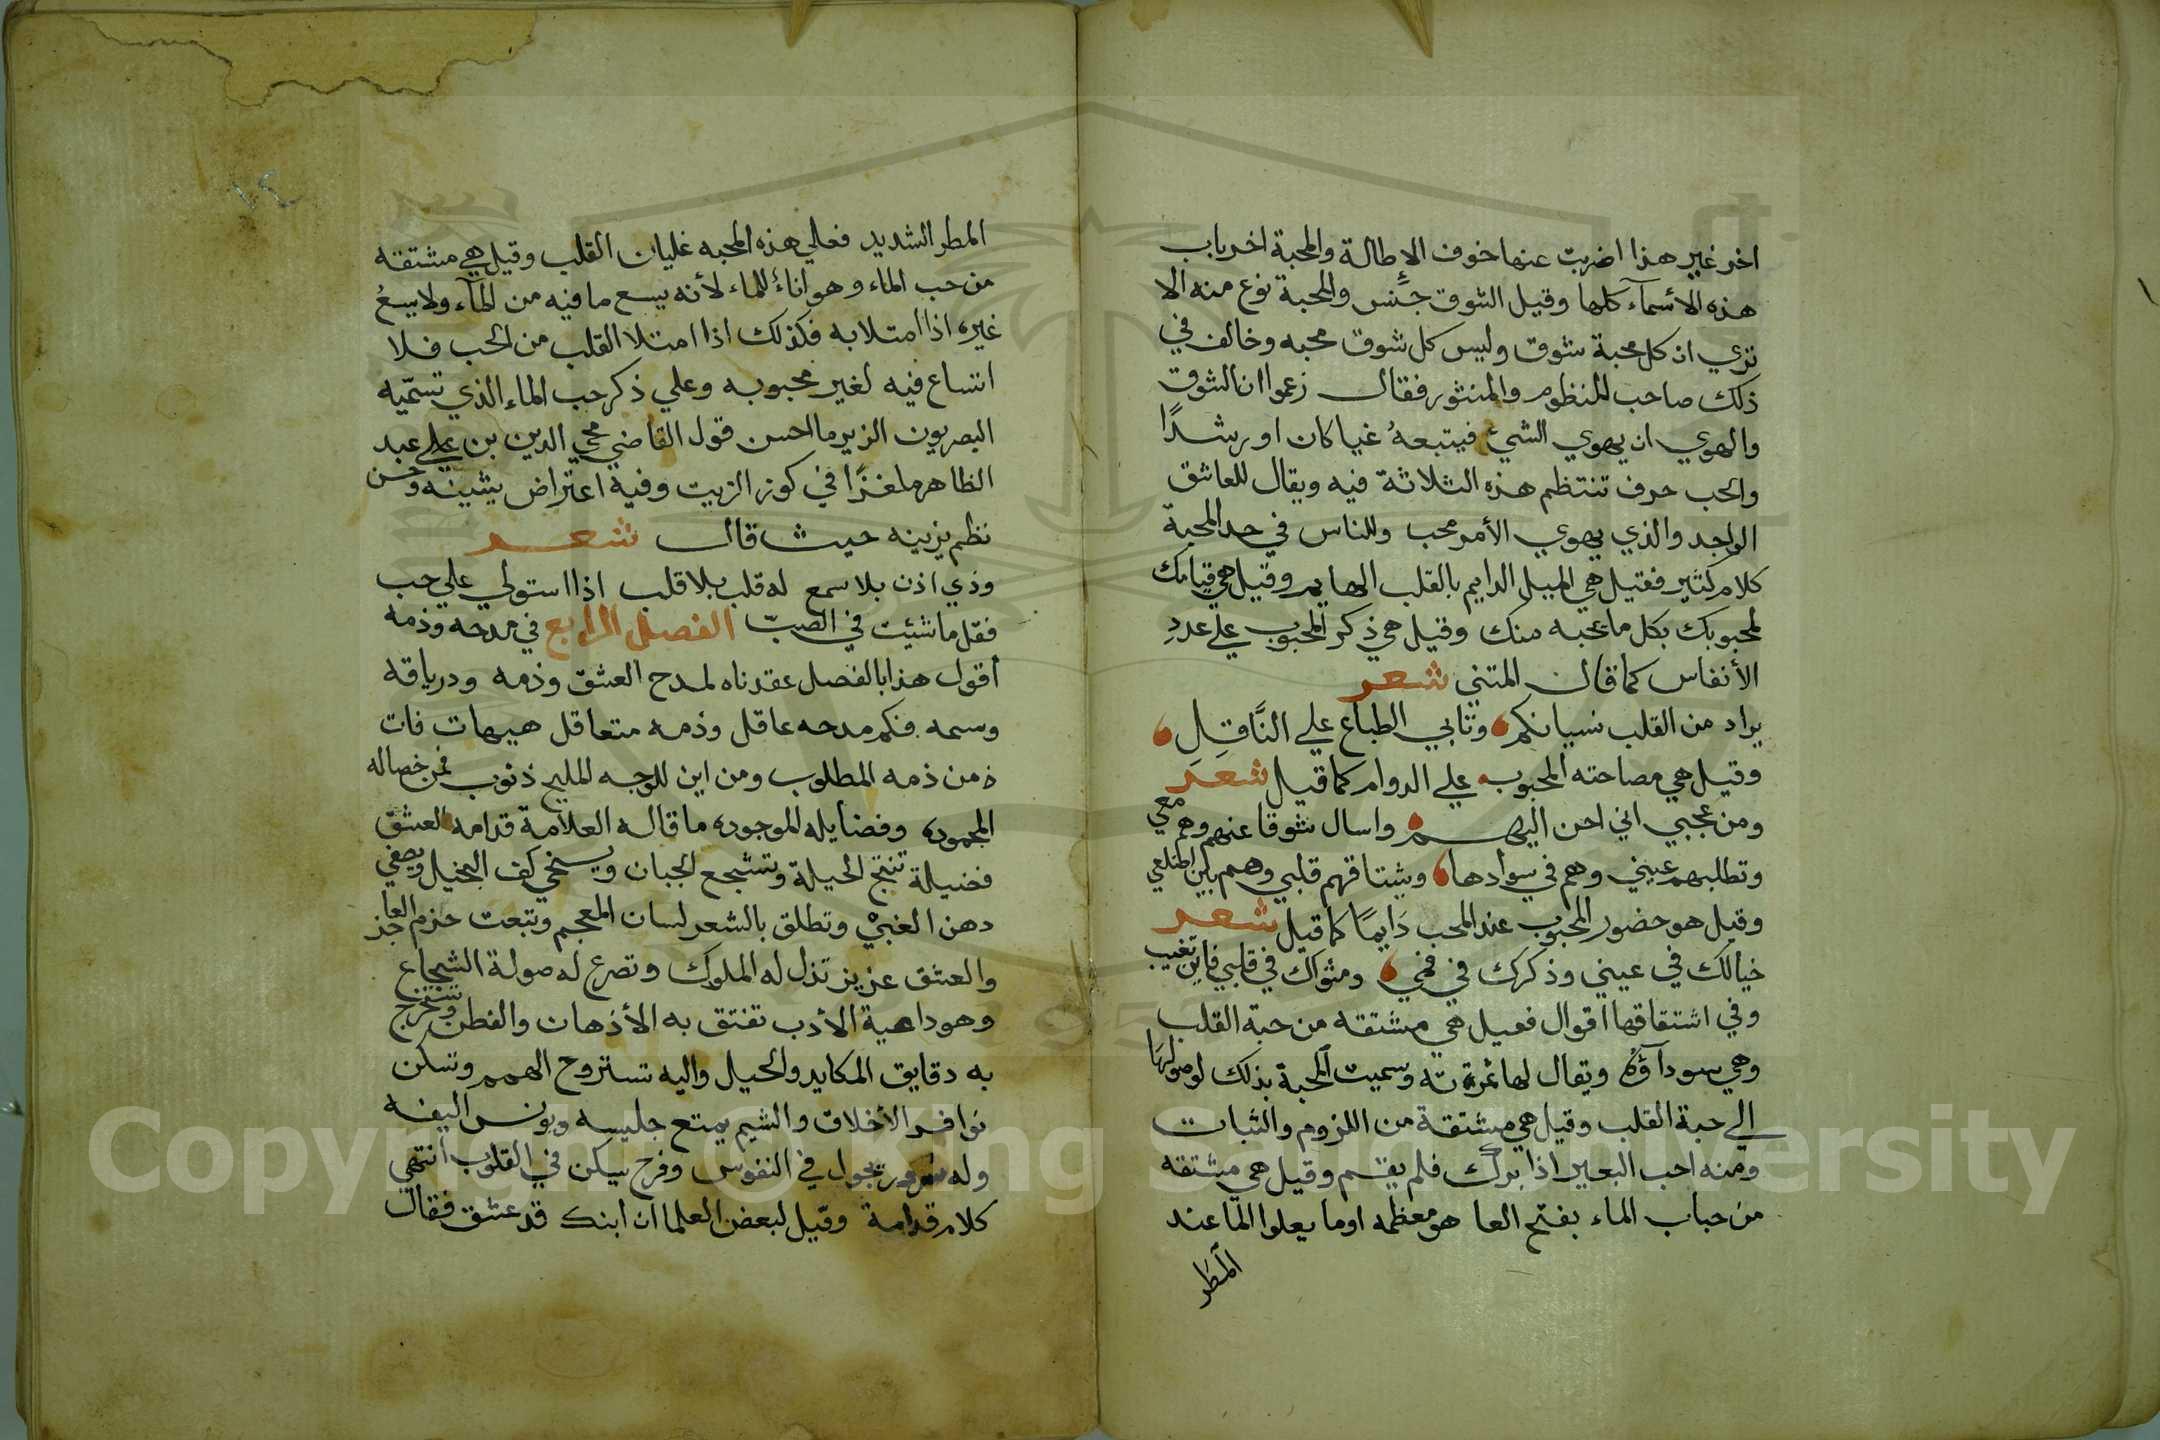 اخر غير هذا اضربت عنها خوف الاطالة والمحبة اخر باب
هذه الاسمآء كلها وقيل الشوق جنس والمحبة نوع منه الا
تري ان كل محبة شوق وليس كل شوق محبه وخالف في
ذلك صاحب المنظوم والمنثور فقال زعموا ان الشوق
والهوي ان يهوي الشيء فيتبعهُ غيا كان او رشدًا
والحب حرف تنتظم هذه الثلاثة فيه ويقال للعاشق
الواجد والذي يهوي الأمر محب وللناس في حد المحبة
كلام كثير فقيل هي الميل الدايم بالقلب الهايم وقيل هي قيامك
لمحبوبك بكل ما يحبه منك وقيل هي ذكر المحبوب علي عددِ
الأنفاس كما قال المتنبي شعر
يراد من القلب نسيانكم وتابي الطباع علي النَّاقِلِ
وقيل هي مصاحته المحبوب علي الدوام كما قيل شعر
ومن عجبي اني احن اليهم واسال شوقا عنهم وهم معي
وتطلبهم عيني وهم في سوادها ويشتاقهم قلبي وهم بين اضلعي
وقيل هو حضور المحبوب عند المحب دَايمًا كما قيل شعر
خيالك في عيني وذكرك في فمي ومثواك في قلبي فاين تغيب
وفي اشتقاقها اقوال فقيل هي مشتقه من حبة القلب
وهي سودآؤه ويقال لها ثمرته وسميت المحبة بذلك لوصولها
الي حبة القلب وقيل هي مشتقة من اللزوم والثبات
ومنه احب البعير اذا برك فلم يقم وقيل هي مشتقه
من حباب الماء بفتح الحا هو معظمه او ما يعلوا الما عند
المطر
١٤
المطر الشديد فعلي هذه المحبه غليان القلب وقيل هي مشتقه
من حب الماء وهو اناءٌ للماء لأنه يسع ما فيه من المآء ولا يسعُ
غيره اذا امتلا به فكذلك اذا امتلا القلب من الحب فلا
اتساع فيه لغير محبوبه وعلي ذكر حب الماء الذي تسمّيه
البصريون الزير ما احسن قول القاضي محيي الدين بن عبد
الظاهر ملغزًا في كوز الزيت وفيه اعتراض يشينه وحسن
نظم يزينه حيث قال شعر
وذي اذن بلا سمع له قلب بلا قلب اذا استولي علي حب
فقل ما شئيت في الصبّ الفصل الرابع في مدحه وذمه
أقول هذا الفصل عقدناه لمدح العشق وذمه ودرياقه
وسمه فكم مدحه عاقل وذمه متعاقل هيهات فات
من ذمه المطلوب ومن اين للوجه المليح ذنوب فمن خصاله
المحموده وفضايله الموجوده ما قاله العلامة قدامه العشق
فضيلة تنتج الحيلة وتشجع الجبان ويسخي كف البخيل ويصفي
دهن الغبيْ وتطلق بالشعر لسان المعجم وتبعث حزم العاجز
والعشق عزيز تذل له الملوك وتصرع له صولة الشجاع
وهو داهية الأدب تفتق به الأذهان والفطن وتستخرج
به دقايق المكايد والحيل واليه تستروح الهمم وتسكن
نوافر الأخلاق والشيم يمتع جليسه ويونس اليفه
وله سرور يجول في النفوس وفرح يسكن في القلوب انتهي
كلام قدامة وقيل لبعض العلما ان ابنك قد عشق فقال
Copyright © King Saud University